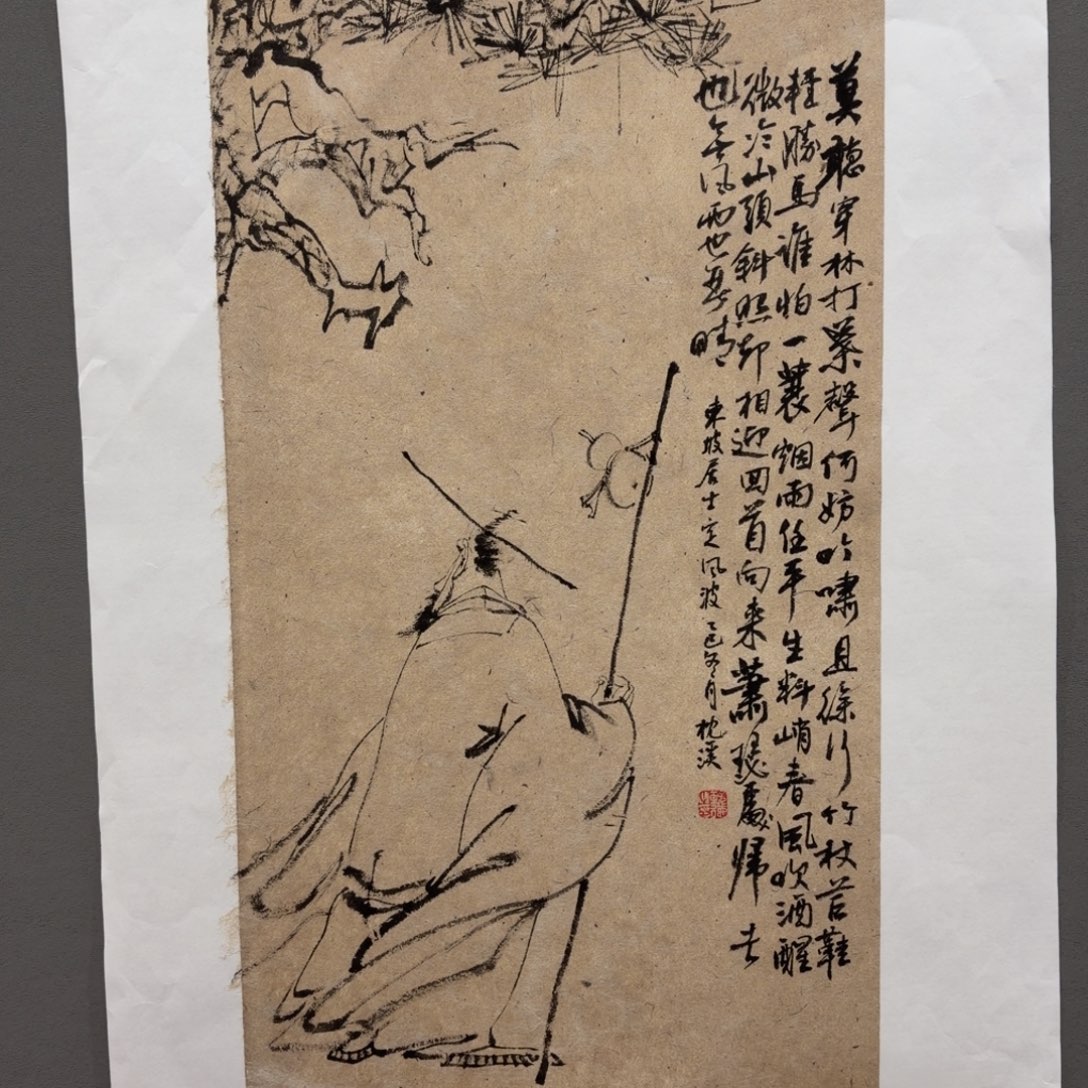 莫聽穿林打葉聲何妨吟嘯且徐行竹杖芒鞋
輕勝馬誰怕一蓑烟雨任平生料峭春風吹酒醒
微冷山頭斜照却相迎回首向來蕭瑟處歸去
也無風雨也無晴
東坡居士定風波乙巳冬月枕溪